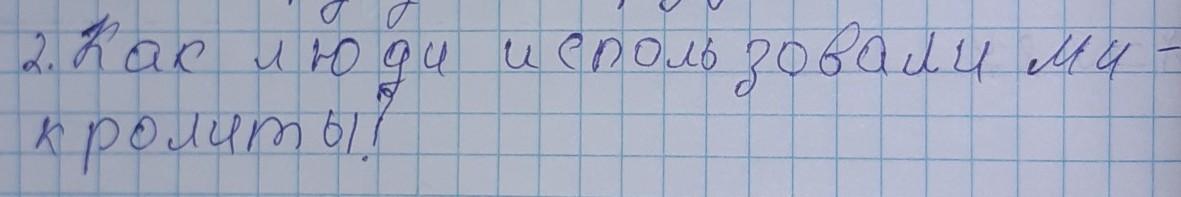 2. Как люди использовали ми-
кролиты?